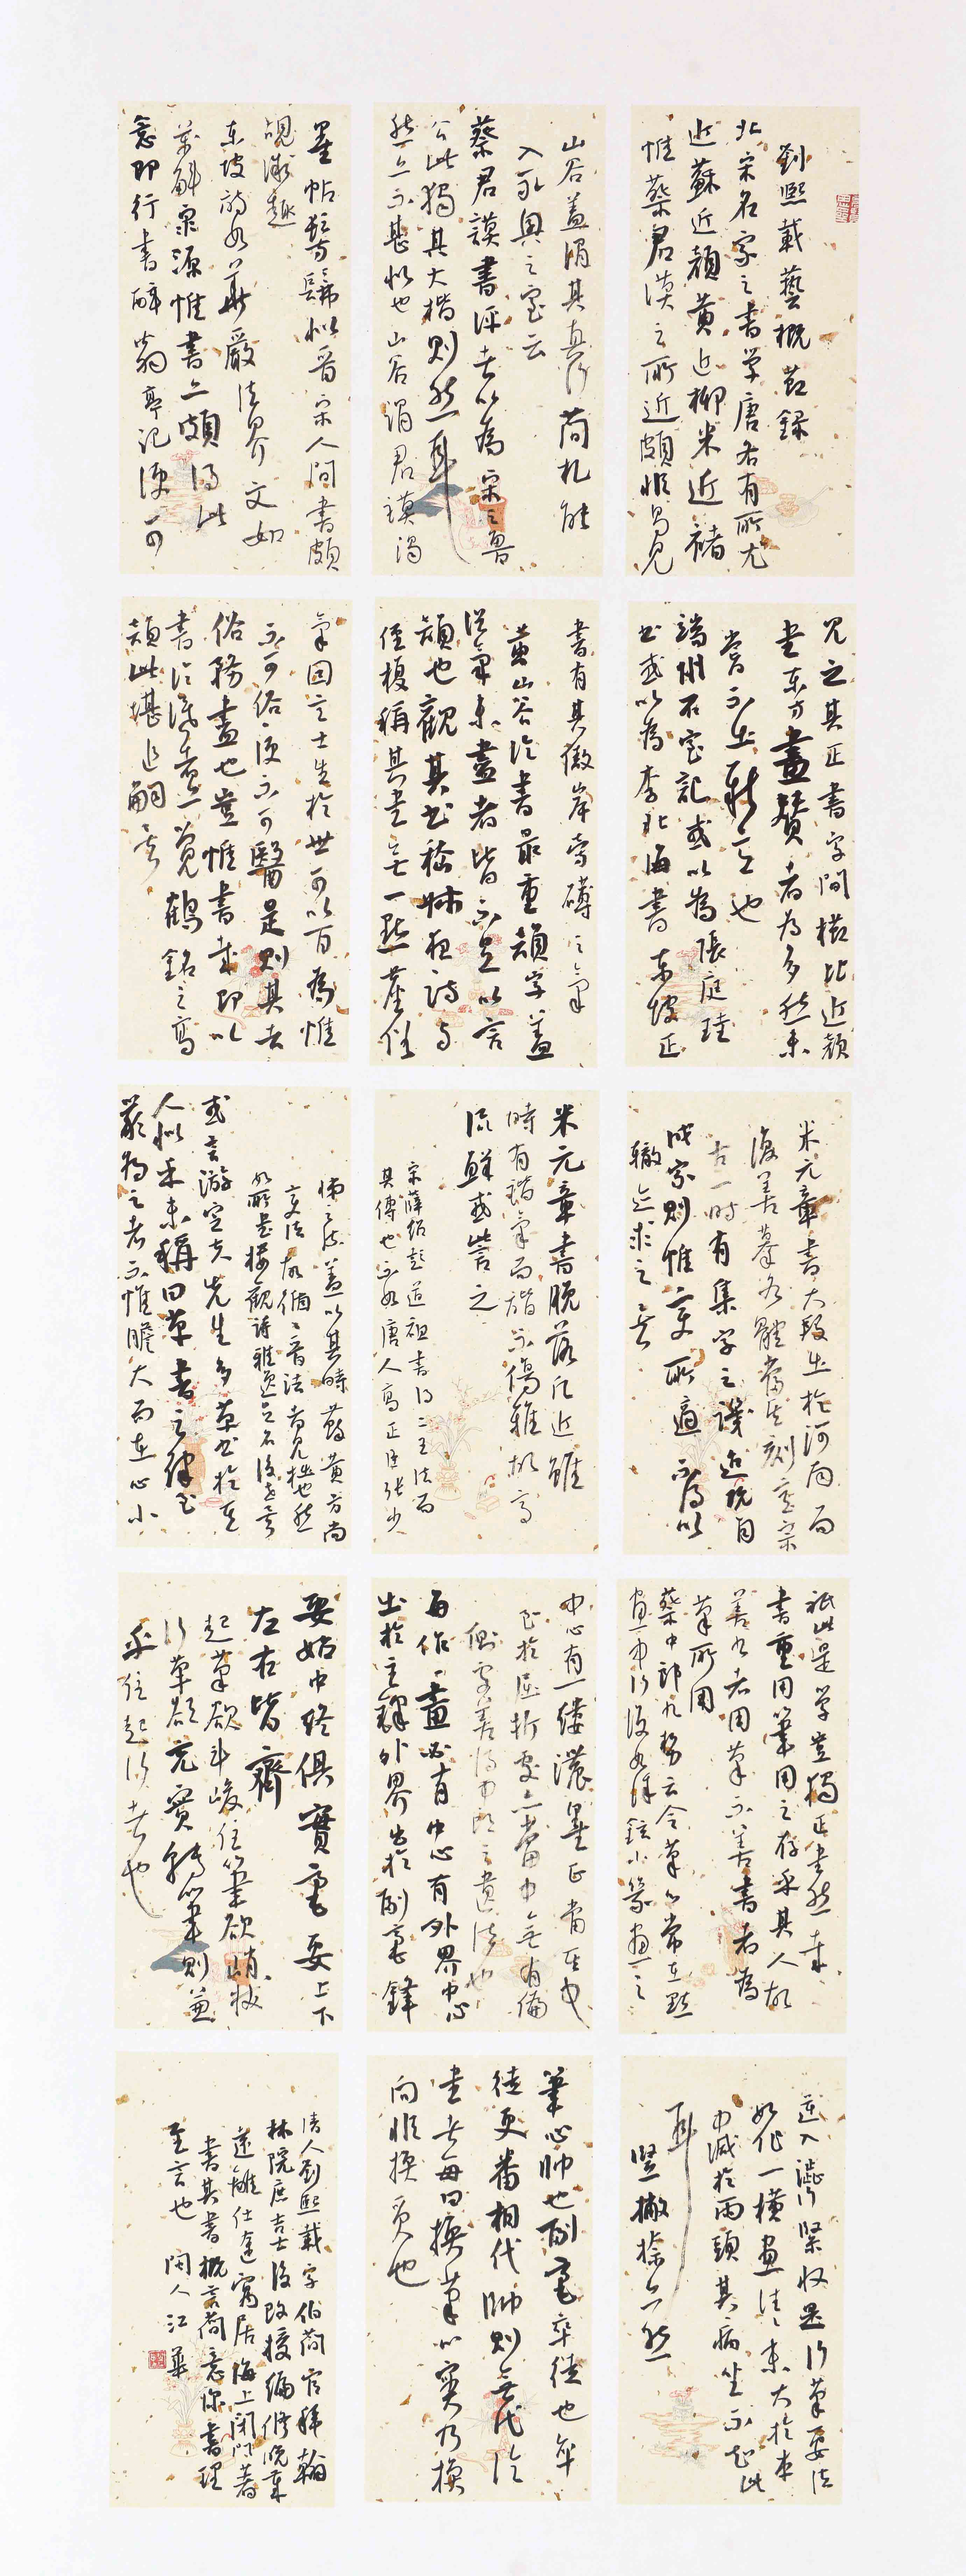 劉熙載藝概節録
北宋名家之書學唐各有所尤
近蘇近顏黄近柳米近褚
惟蔡君謨之所近頗非易見
山谷蓋謂其真行簡札能
入永興之室云
蔡君謨書評者以為宋之魯
公此獨其大楷則然耳
然亦不甚似也山谷謂君謨渴
墨帖髣髴似晉宋人間書頗
覘微趣
東坡詩如華嚴法界文如
萬斛泉源惟書亦頗得此
意即行書醉翁亭記便可
見之其正書字間櫛比近顏
書東方畫贊者為多然未
嘗不出新意也
端州石室記或以為張庭珪
書或以為李北海書東坡正
書有其傲岸旁礴之氣
黄山谷論書最重韻字蓋
俗氣未盡者皆不足以言
韻也觀其書嵇叔夜詩與
侄榎稱其書無一點塵俗
氣因言士生於世可以百為惟
不可俗俗便不可醫是則其去
俗務盡也豈惟書哉即以
書論識者亦覺鶴銘之高
韻此堪追嗣矣
米元章書大段出於河南而
復善摹各體當其刻意宗
古一時有集字之譏迨既自
成家則惟變所適不得以
轍迹求之矣
米元章書脫落凡近雖
時有諧氣而諧不傷雅故高
流鮮或訾之
宋薛紹彭道祖書得二王法而
其傳也不如唐人高正臣張少
悌之流蓋以其時蘇黄方尚
變法故循循晉法者見絀也然
如所書樓觀詩雅逸足名後世矣
或言游定夫先生多草書於其
人似乎未稱曰草書之律至
嚴為之者不惟膽大而在心小
祇此是學豈獨正書然哉
書重用筆用之存乎其人故
善書者用筆不善書者為
筆所用
蔡中郎九勢云令筆心常在點
畫中行後如徐鉉小篆畫之
中心有一縷濃墨正當其中
至於屈折處亦當中無有偏
側處蓋得中郎之遺法也
每作一畫必有中心有外界中心
出於主鋒外界出於副毫鋒
要始中終俱實毫要上下
左右皆齊
起筆欲斗峻住筆欲峭拔
行筆欲充實轉筆則兼
乎住起行者也
逆入澀行緊收是行筆要法
如作一橫畫往往末大於本
中減於兩頭其病坐不知此
耳
豎撇捺亦然
筆心帥也副毫卒徒也卒
徒更番相代帥則無代論
書者每曰換筆心實乃換
向非換質也
清人劉熙載字伯簡官拜翰
林院庶吉士後改授編修晚年
遂離仕途寓居海上閉門著
書其書概言簡意深書理
至言也 閑人江華